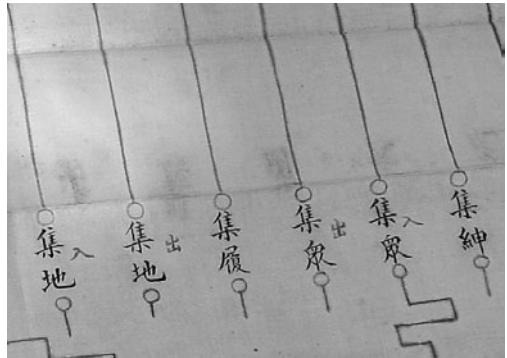 集紳
集眾入
集眾出
集履
集地出
集地入